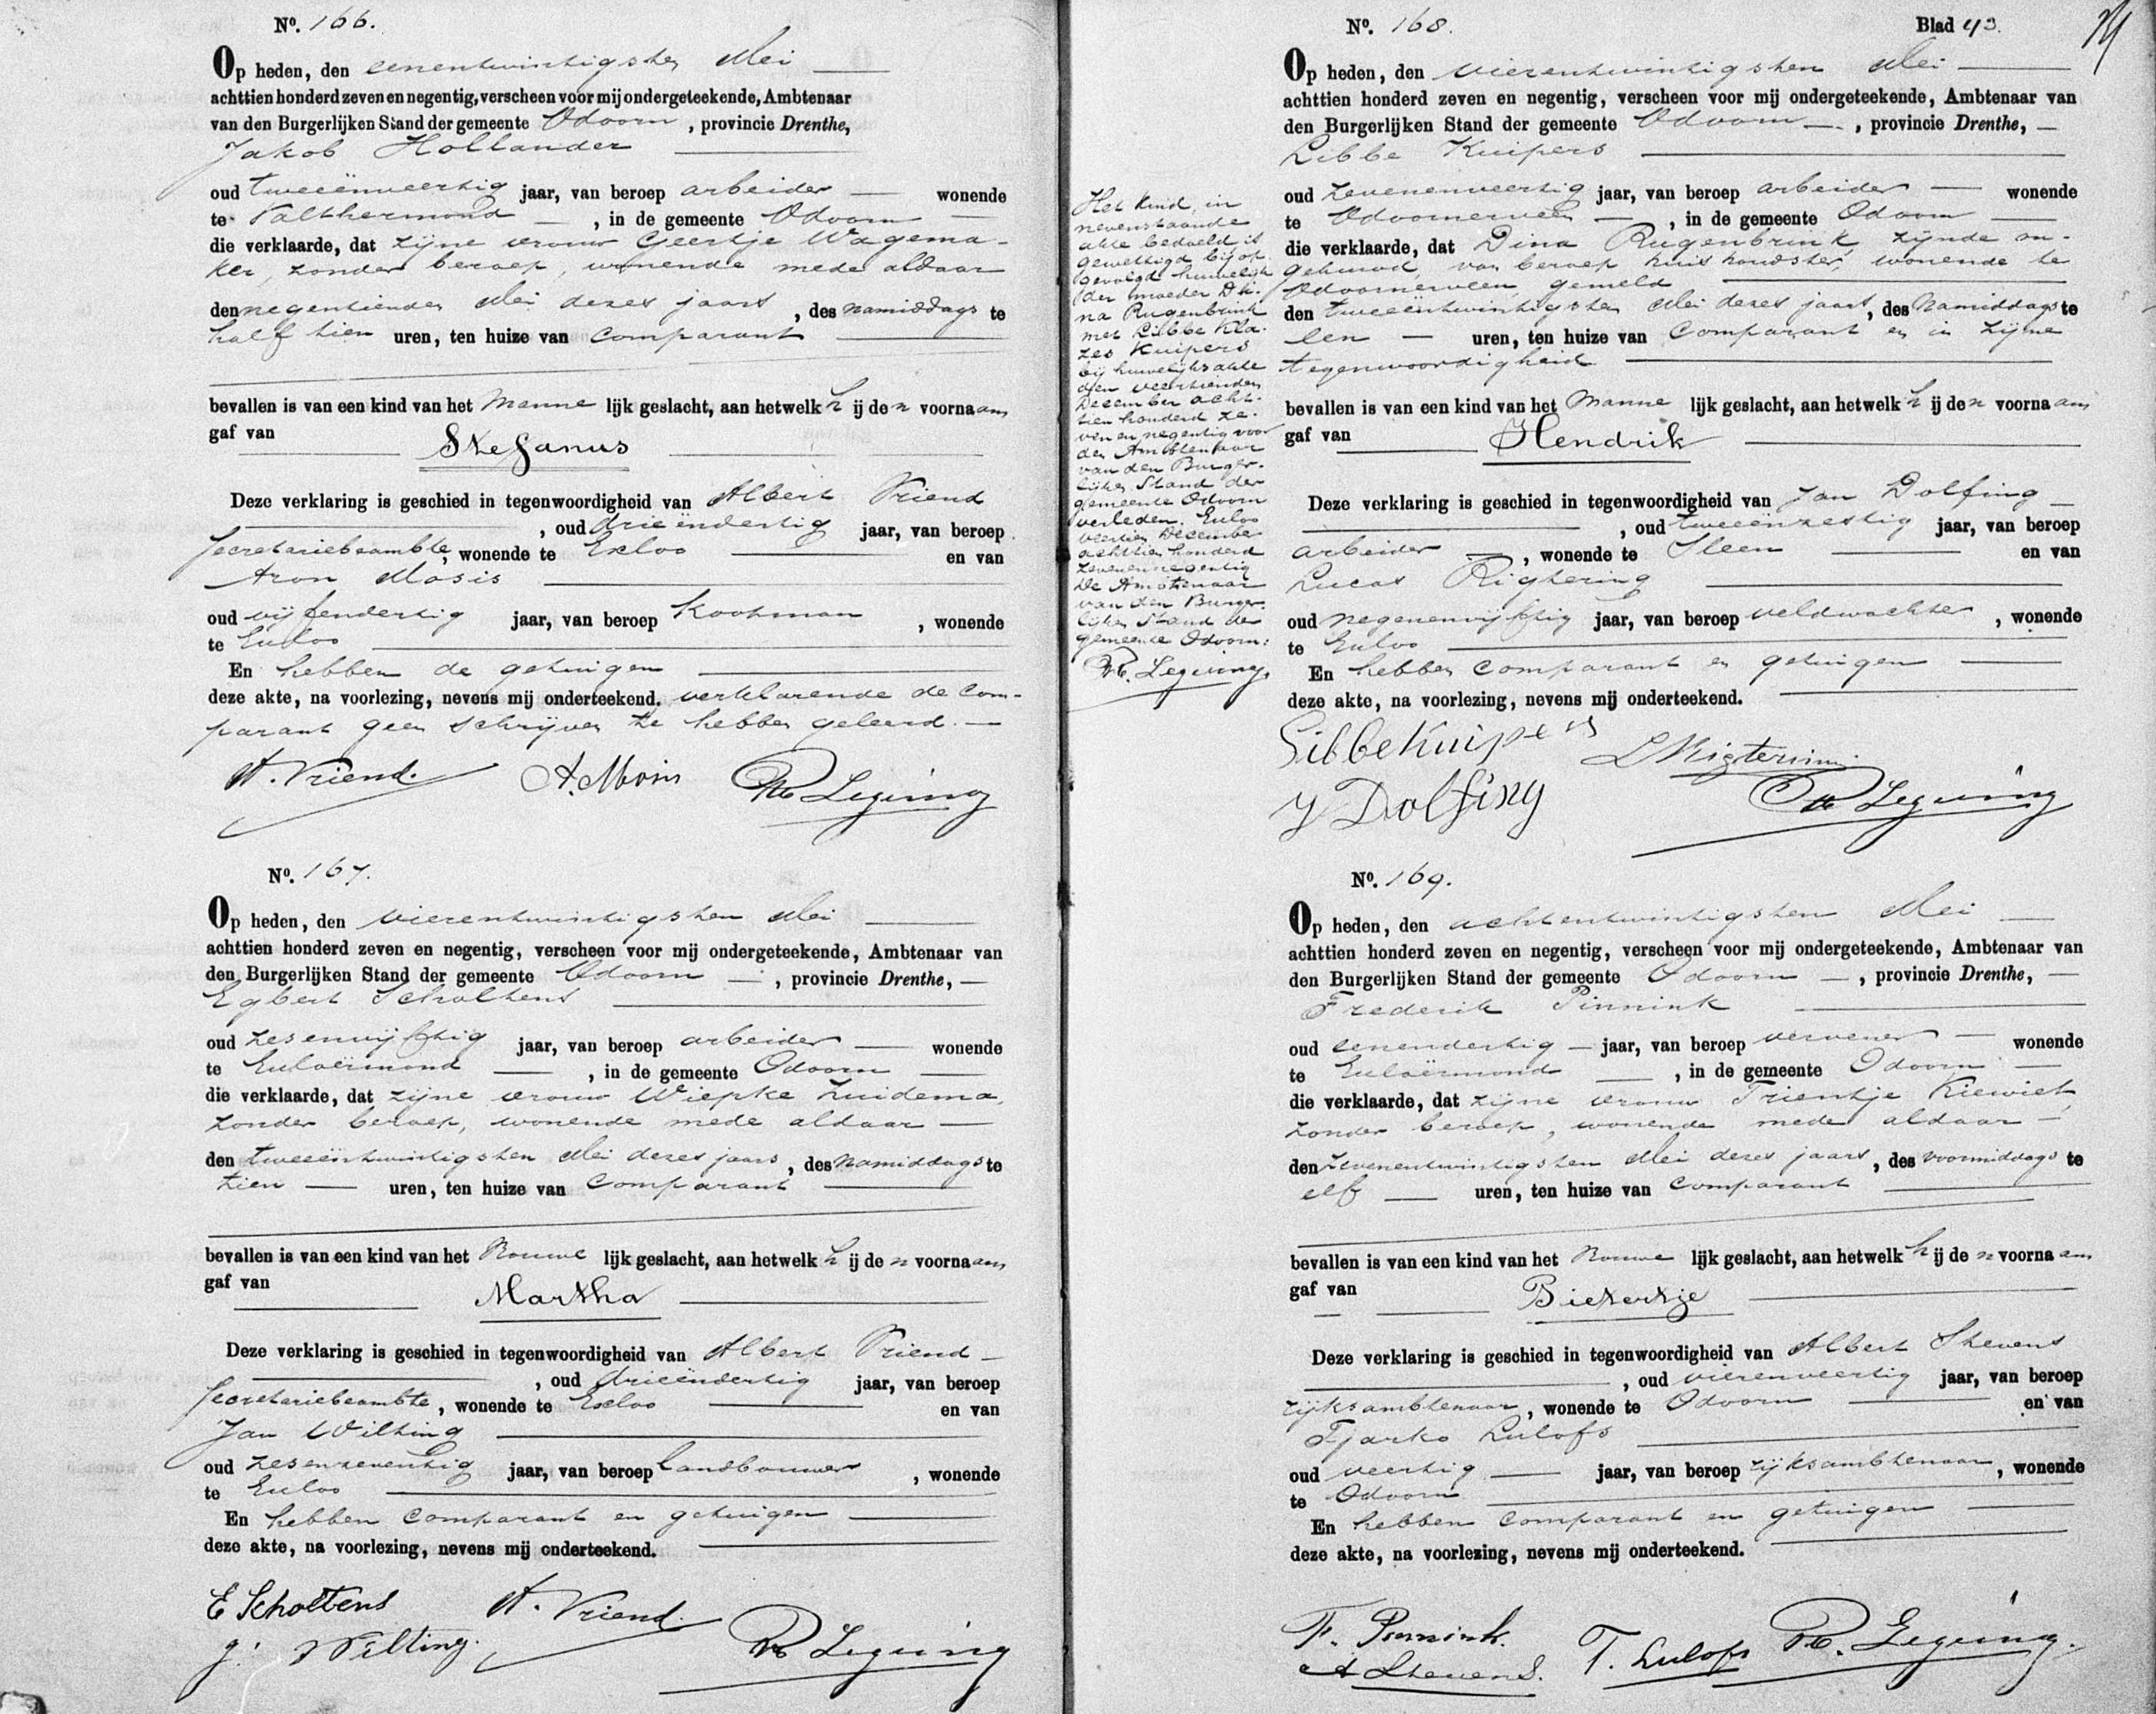 No. 166.
Op heden, den eenentwintigsten Mei
achttien honderd zeven en negentig, verscheen voor mij ondergeteekende, Ambtenaar
van den Burgerlijken Stand der gemeente Odoorn, provincie Drenthe,
Jakob Hollander
oud tweeënveertig jaar, van beroep arbeider wonende
te Valthermond, in de gemeente Odoorn
die verklaarde, dat zijne vrouw Geertje Wagema-
ker, zonder beroep, wonende mede aldaar
den negentienden Mei dezes jaars, des namiddags te
half tien uren, ten huize van comparant
bevallen is van een kind van het Manne lijk geslacht, aan hetwelk h ij de n voornaam
gaf van
Stefanus
Deze verklaring is geschied in tegenwoordigheid van Albert Vriend
, oud drieëndertig jaar, van beroep
secretariebeambte, wonende te Exloo en van
Aron Mosis
oud vijfendertig jaar, van beroep Koopman, wonende
te Exloo
En hebben de getuigen
deze akte, na voorlezing, nevens mij onderteekend, verklarende de com-
parant geen schrijven te hebben geleerd.
A. Vriend. A. Mosis Leguing
No. 167.
Op heden, den vierentwintigsten Mei
achttien honderd zeven en negentig, verscheen voor mij ondergeteekende, Ambtenaar van
den Burgerlijken Stand der gemeente Odoorn, provincie Drenthe,
Egbert Scholtens
oud zesenvijftig jaar, van beroep arbeider wonende
te Exloërmond, in de gemeente Odoorn
die verklaarde, dat zijne vrouw Wiepke Zuidema,
zonder beroep, wonende mede aldaar
den tweeëntwintigsten Mei dezes jaars, des namiddags te
tien uren, ten huize van comparant
bevallen is van een kind van het Vrouwe lijk geslacht, aan hetwelk h ij de n voornaam
gaf van
Martha
Deze verklaring is geschied in tegenwoordigheid van Albert Vriend
, oud drieëndertig jaar, van beroep
secretariebeambte, wonende te Exloo en van
Jan Wilting
oud zesenzeventig jaar, van beroep landbouwer, wonende
te Exloo
En hebben comparant en getuigen
deze akte, na voorlezing, nevens mij onderteekend.
E Scholtens A. Vriend.
J. Wilting. Leguing
No. 168. Blad 43.
Op heden, den vierentwintigsten Mei
achttien honderd zeven en negentig, verscheen voor mij ondergeteekende, Ambtenaar van
den Burgerlijken Stand der gemeente Odoorn, provincie Drenthe,
Libbe Kuipers
oud zevenenveertig jaar, van beroep arbeider wonende
te Odoornerveen, in de gemeente Odoorn
die verklaarde, dat Dina Rugenbrink, zijnde on-
gehuwd, van beroep huishoudster, wonende te
Odoornerveen gemeld
den tweeëntwintigsten Mei dezes jaars, des namiddags te
een uren, ten huize van comparant en in zijne
tegenwoordigheid
bevallen is van een kind van het Manne lijk geslacht, aan hetwelk h ij de n voornaam
gaf van
Hendrik
Deze verklaring is geschied in tegenwoordigheid van Jan Dolfing
, oud tweeënzestig jaar, van beroep
arbeider, wonende te Sleen en van
Lucas Rigtering
oud negenenvijftig jaar, van beroep veldwachter, wonende
te Exloo
En hebben comparant en getuigen
deze akte, na voorlezing, nevens mij onderteekend.
Libbe Kuipers L Rigterinn
J Dolfing Leguing
Het kind, in
nevenstaande
akte bedoeld is
gewettigd bij op-
gevolgd huwelijk
der moeder Di-
na Rugenbrink
met Libbe Kla-
zes Kuipers
bij huwelijksakte
den veertienden
December acht-
tien honderd ze-
ven en negentig voor
den Ambtenaar
van den Burger-
lijken Stand der
gemeente Odoorn
verleden. Exloo
veertien December
achttien honderd
zevenennegentig
De Ambtenaar
van den Burger-
lijken Stand der
gemeente Odoorn:
Leguing.
No. 169.
Op heden, den achtentwintigsten Mei
achttien honderd zeven en negentig, verscheen voor mij ondergeteekende, Ambtenaar van
den Burgerlijken Stand der gemeente Odoorn, provincie Drenthe,
Frederik Pinnink
oud eenendertig jaar, van beroep vervener wonende
te Exloërmond, in de gemeente Odoorn
die verklaarde, dat zijne vrouw Trientje Kiewiet,
zonder beroep, wonende mede aldaar
den zevenentwintigsten Mei dezes jaars, des voormiddags te
elf uren, ten huize van comparant
bevallen is van een kind van het Vrouwe lijk geslacht, aan hetwelk h ij de n voornaam
gaf van
Pietertje
Deze verklaring is geschied in tegenwoordigheid van Albert Stevens
, oud vierenveertig jaar, van beroep
rijksambtenaar, wonende te Odoorn en van
Tjarko Lulofs
oud veertig jaar, van beroep rijksambtenaar, wonende
te Odoorn
En hebben comparant en getuigen
deze akte, na voorlezing, nevens mij onderteekend.
F. Pinnink.
A Stevens. T. Lulofs Leguing.